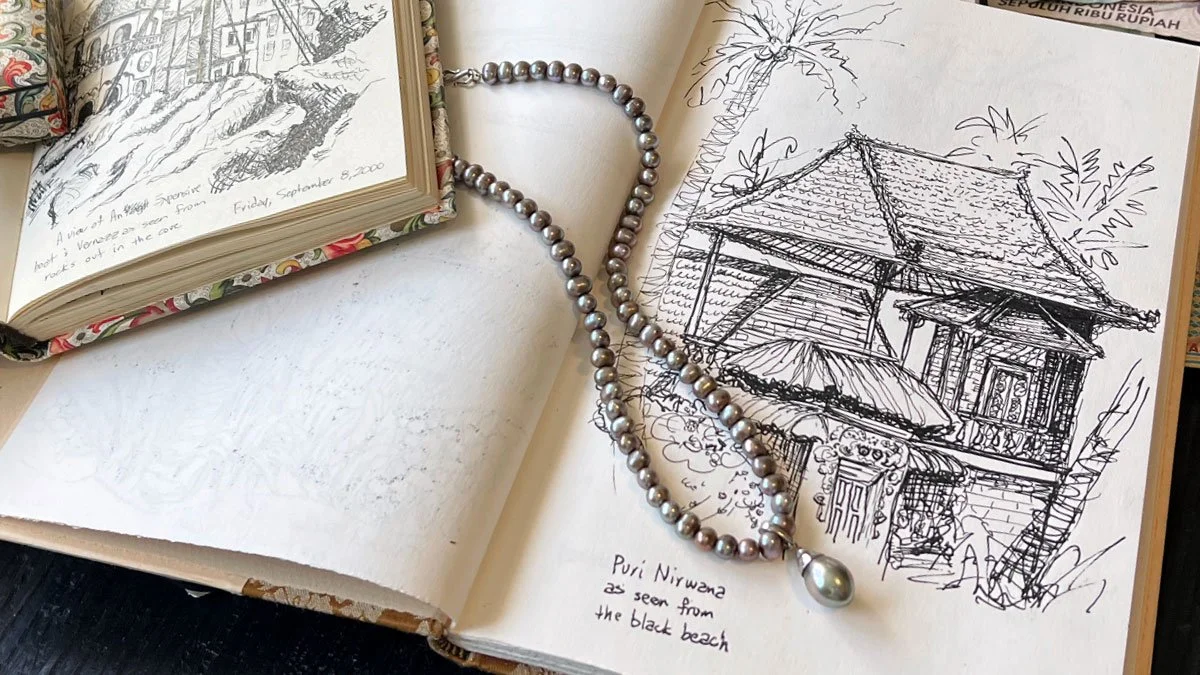 INDONESIA
SEPULUH RIBU RUPIAH
A view of An Expensive
boat & Vernazza as seen from
rocks out in the cove
Friday, September 8, 2000
Puri Nirwana
as seen from
the black beach